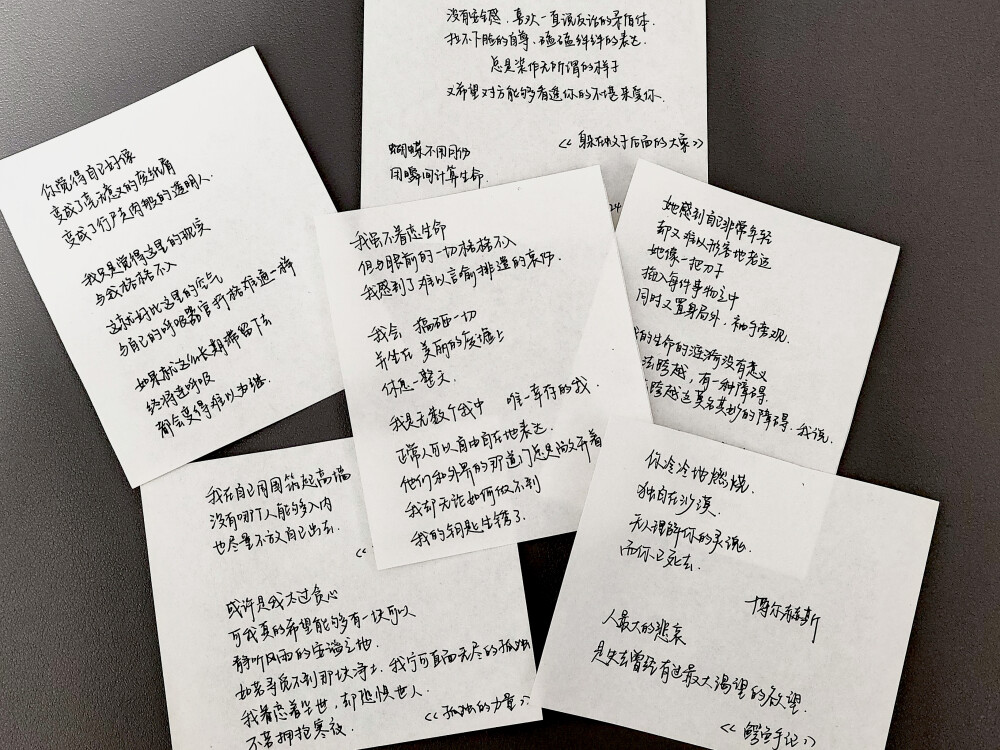 没有安全感，喜欢一直说反话的矛盾体.
拉不下脸的自尊、磕磕绊绊的表达.
总是装作无所谓的样子
又希望对方能够看透你的不堪来爱你.
《躲在蚊子后面的大象》
蝴蝶不用月份
用瞬间计算生命.
24
你觉得自己好像
变成了毫无意义的废纸屑
变成了行尸走肉般的透明人.
我只是觉得这里的现实
与我格格不入
这就好比这里的空气
与自己的呼吸器官扞格难通一样
如果就这么长期滞留下去
终将连呼吸
都会变得难以为继.
我虽不着恋生命
但与眼前的一切格格不入
我感到了难以言喻排遣的哀伤.
我会 搞砸一切
并坐在美丽的废墟上
休息一整天.
我是无数个我中 唯一幸存的我
正常人可以自由自在地表达.
他们和外界的那道门总是敞开着
我却无论如何做不到
我的钥匙生锈了.
她感到自己非常年轻
却又难以形容地老迈
她像一把刀子
插入每件事物之中
同时又置身局外，袖手旁观.
的生命的涟漪没有意义
法跨越，有一种障碍.
跨越这莫名其妙的障碍.我说.
我在自己周围筑起高墙
没有哪个人能够入内
也尽量不放自己出去.
《
或许是我太过贪心
可我真的希望能够有一块可以
静听风雨的安谧之地
如若寻觅不到那块净土，我宁可直面无尽的孤独
我着恋着尘世，却恐惧世人.
不若拥抱寒夜.
《孤独的力量》
你冷冷地燃烧.
独自在沙漠.
无人理解你的灵魂.
而你已死去.
博尔赫斯
人最大的悲哀
是失去曾经有过最大渴望的欲望.
《鳄鱼手记》